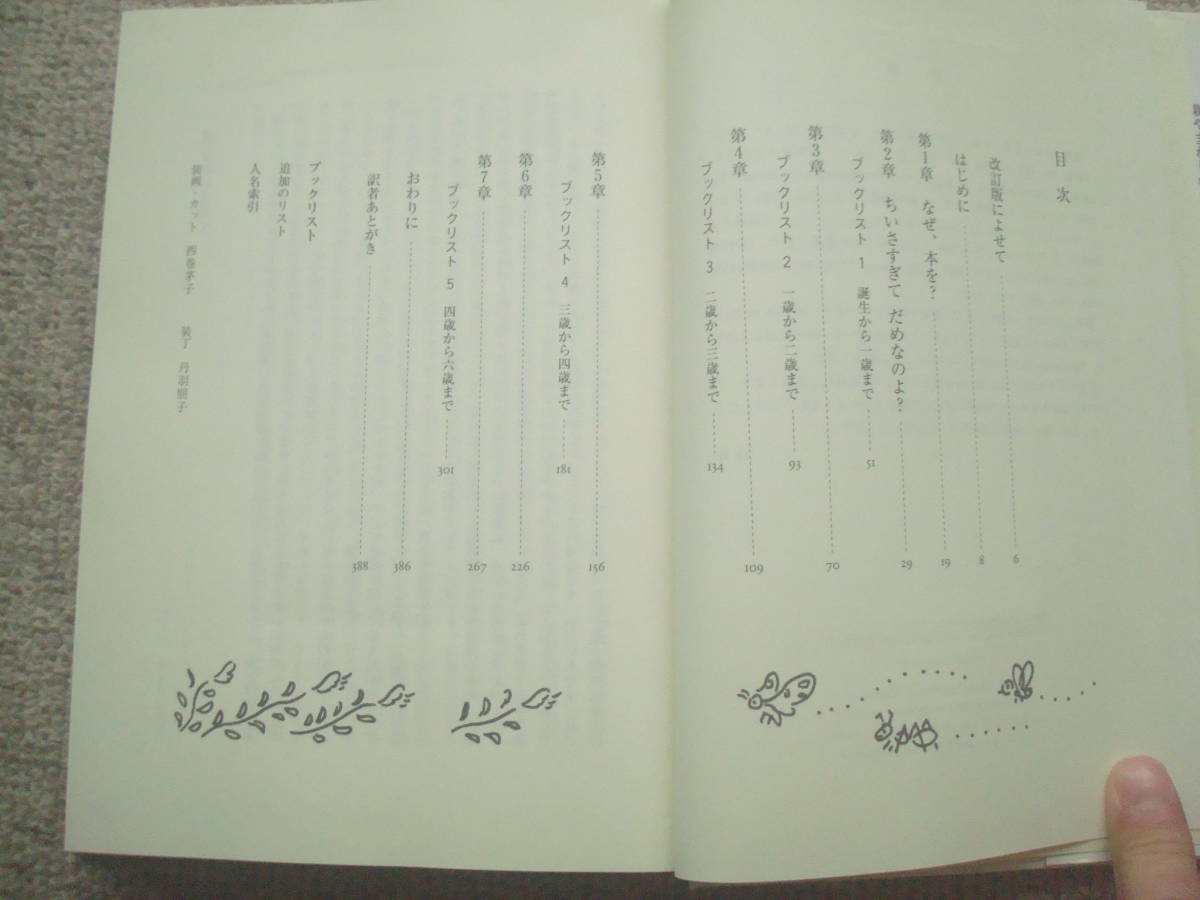 目次
改訂版によせて 6
はじめに 8
第1章 なぜ、本を? 19
第2章 ちいさすぎて だめなのよ? 29
ブックリスト 1 誕生から一歳まで 51
第3章 70
ブックリスト 2 一歳から二歳まで 93
第4章 109
ブックリスト 3 二歳から三歳まで 134
第5章 156
ブックリスト 4 三歳から四歳まで 181
第6章 226
第7章 267
ブックリスト 5 四歳から六歳まで 301
おわりに 386
訳者あとがき 388
ブックリスト
追加のリスト
人名索引
装画・カット 西巻茅子 装丁 丹羽朋子